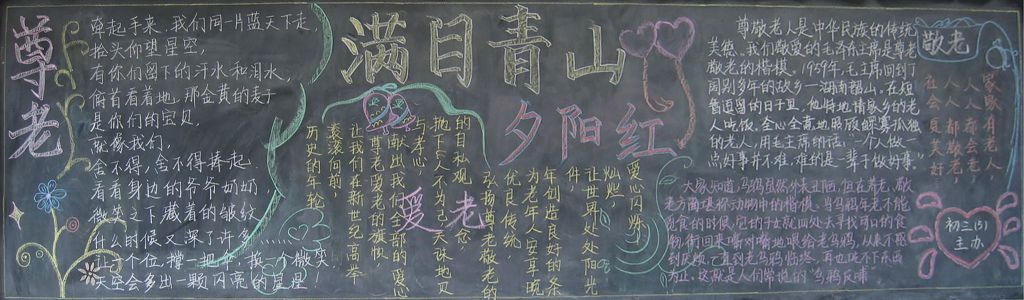 尊老
尊起手来,我们同一片蓝天下走,
抬头仰望星空,
有你们留下的汗水和泪水,
俯首看着地,那金黄的麦子
是你们的宝贝,
就像我们,
舍不得,舍不得捧起,
看看身边的爷爷奶奶,
微笑之下藏着的皱纹
什么时候又深了许多……
让一个位,搀一把手,换一个微笑
天空会多出一颗闪亮的星星!
满目青山
夕阳红
爱老
爱心闪烁,
灿烂
让世界处处阳光
件
年创造良好的条
为老年人安享晚
优良传统,
弘扬尊老敬老的
的自私观念
抛下“人不为己,天诛地灭”
与孝心,
献出我们全部的爱心
尊老爱老的旗帜
让我们在新世纪高举
滚滚向前
历史的车轮
尊敬老人是中华民族的传统
美德。我们敬爱的毛泽东主席是尊老
敬老的楷模。1959年,毛主席回到了
阔别多年的故乡—湖南韶山,在短
暂逗留的日子里,他特地请家乡的老
人吃饭,全心全意地照顾鳏寡孤独
的老人,用毛主席的话:“一个人做一
点好事并不难,难的是一辈子做好事。”
大家知道,乌鸦虽然外表丑陋,但在养老、敬
老方面堪称动物中的楷模。当乌鸦年老不能
觅食的时候,它的子女就四处去寻找可口的食
物,衔回来嘴对嘴地喂给老乌鸦,从来不感
到厌烦,一直到老乌鸦临终,再也吃不下东西
为止。这就是人们常说的“乌鸦反哺”
敬老
家家有老人
人人都会老
人人都敬老,
社会更美好
初三(5)
主办